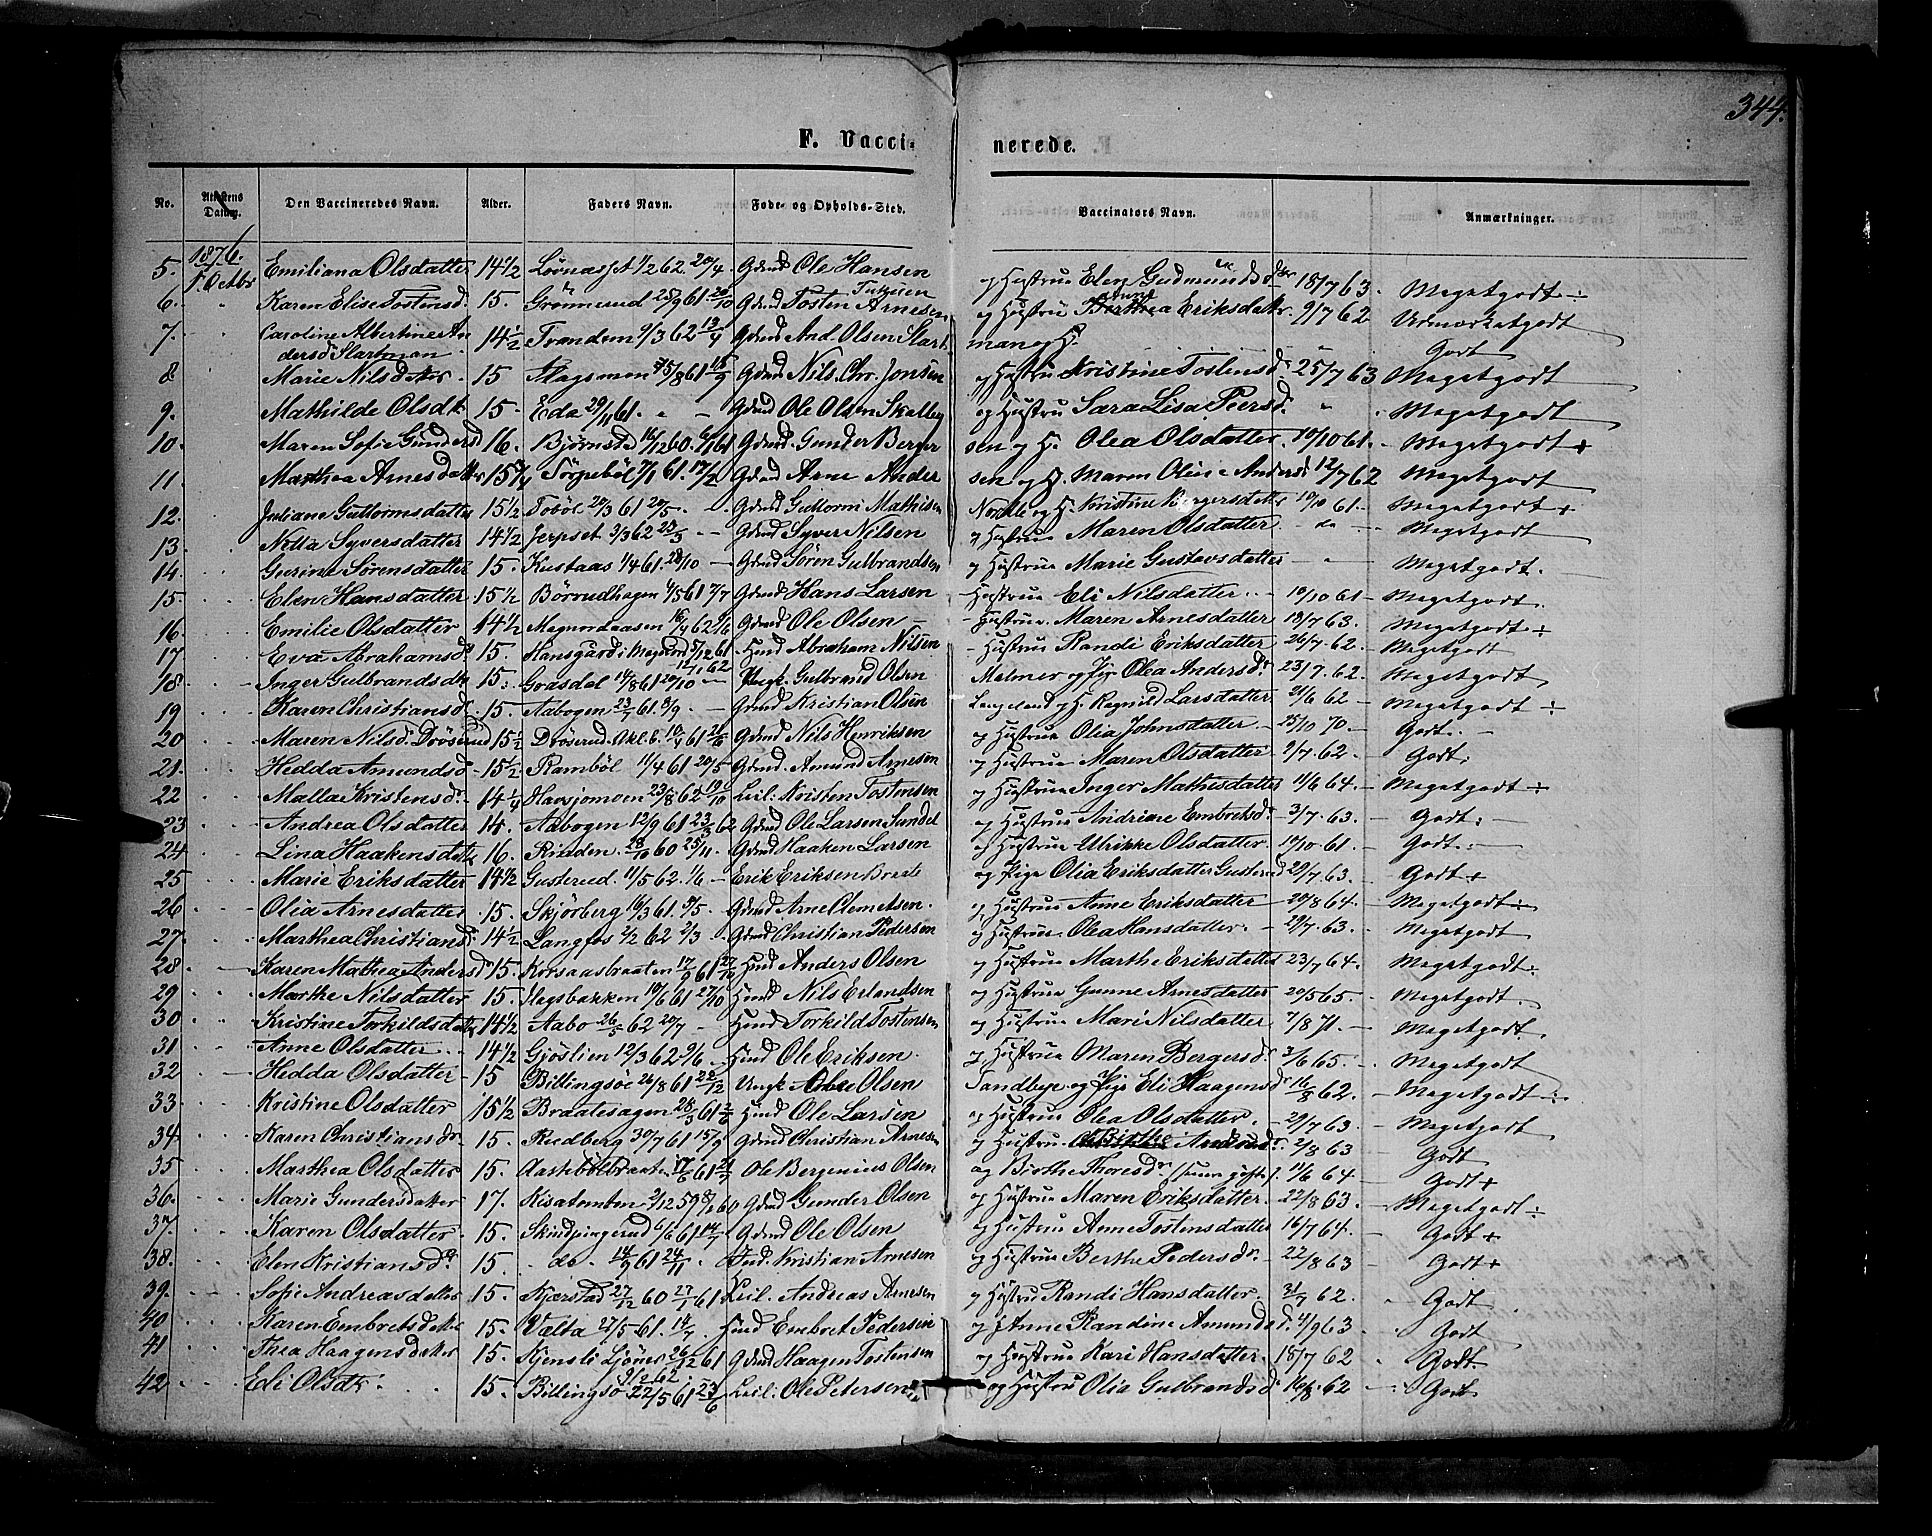 344.
F. Vaccinerede.
No. Attestens Datum. Den Vaccineredes Navn. Alder. Faders Navn. Føde- og Opholds-Sted. Vaccinators Navn. Anmærkninger.
1876.
5. 1. Octbr Emiliana Olsdatter 14 1/2 1/2 62. 20/4. Gdmd Ole Hansen og Hustrue Elen Gudmundsdtr 18/7 63. Megetgodt ÷
6. Karen Elise Tostensd. 15. Grønnerud 25/9 61 20/10 Gdmd Tosten Arnesen og Hustru Berthea Eriksdatter. 9/7 62 Udmærketgodt
7. Caroline Albertine Andersd Slartman 14 1/2 Trandem 9/3 62 And. Olsen Slartman og H. Godt
8 Marie Nilsdatter 15 Slagsmoen 15/8 61 Gdmd Nils. Chr. Jonsen og Hustru Kristine Tostensd 25/7 63 Megetgodt
9. Mathilde Olsdt. 15. Eda 29/11 61. Gdmd Ole Olsen Skalberg og Hustru Sara Lisa Peersd. Megetgodt
10. Maren Sofie Gundersd 16. Bjørnstad 16/12 60. Gdmd. Gunder Bergersen og H. Olea Olsdatter. 19/10 61. Megetgodt +
11. Marthea Arnesdatter 15 3/4 7/1 61. 17/2 Gdmd Arne Andersen og H. Maren Oline Andersd 12/7 62 Megetgodt
12. Juliane Guttormsdatter 15 1/2 Tobøl 20/3 61 20/5. Gdmd Guttorm Mathisen Kristine Bergersdatter 19/10 61. Megetgodt +
13. Netta Syversdatter 14 1/2 Jerpset 3/3 62 Gdmd Syver Nilsen og Hustrue Maren Olsdatter Megetgodt
14. Gurine Sørensdatter 15. Kustaas 1/4 61. 20/10 Gdmd Søren Gulbrandsen og Hustrue Marie Gustavsdatter Megetgodt.
15 Elen Hansdatter 15 1/2 Børrudhagen 4/5 61 7/7 Gdmd Hans Larsen Hustrue Eli Nilsdatter 19/10 61 Megetgodt.
16. Emilie Olsdatter 14 1/2 Magnordaasen 62 Gdmd Ole Olsen Hustrue. Maren Arnesdatter 18/7 63. Megetgodt ÷
17 Eva Abrahamsd. 15. Hansgård i Magnord 5/12 61 12/1 62 Hmd Abraham Nilsen Hustrue Randi Eriksdatter 26/7. 62. Megetgodt
18 Inger Gulbrandsdtr 15. Grasdal 14/8 61 20/10 Ungk. Gulbrand Olsen Melmer og Pige Olea Andersd. 23/7. 62. Megetgodt
19 Karen Christiansd. 15. Aabogen 61. 8/9. Gdmd Kristian Olsen og H. Ragnild Larsdatter 21/6 62 Megetgodt ÷
20 Maren Nilsd. Drøserud 15 1/2 Drøserud. 61 Gdmd Nils Henriksen og Hustrue Olia Johnsdatter 25/10 70. Godt.
21. Hedda Amundsd 15 1/2 Rambøl 11/4 61 20/5 Gdmd. Amund Arnesen og Hustrue Maren Olsdatter 2/7. 62. Godt.
22 Malla Kristensd. 14 1/4 Havsjomoen 23/8 62 19/10 Leil. Kristen Tostensen og Hustrue Inger Mathisdatter 11/6 64. Megetgodt ÷
23 Andrea Olsdatter 14. Aabogen 12/9 61 62 Gdmd Ole Larsen Sundet og Hustrue Andriane Embretsd. 3/7. 63. Godt.
24 Lina Haakensdatter 16. Rudden 28/10 60 25/11. Gdmd Haaken Larsen og Hustrue Ulrikke Olsdatter 19/10 61. Godt.
25 Marie Eriksdatter 14 1/2 Gusterud. 11/5 62. 1/6 Erik Eriksen Braate og Pige Olia Eriksdatter Gusterud 29/7 63. Godt +
26 Olia Arnesdatter 15. Skjørberg 16/3 61. 9/5. Gdmd Arne Clemetsen. og Hustrue Anne Eriksdatter 20/8 64. Megetgodt ÷
27. Marthea Christiansd. 14 1/2 Langfos 2/2 62 2/3 Gdmd Christian Pedersen og Hustrue. Olea Hansdatter. 29/7. 63. Megetgodt
28. Karen Mathea Andersd. 15. Korsaasbraaten 17/9 61 Hmd Anders Olsen og Hustrue Marthe Eriksdatter 23/7 64. Megetgodt.
29 Marthe Nilsdatter 15. Hagsbakken 19/6 61 27/10 Hmd Nils Erlandsen og Hustrue Gunne Arnesdatter 20/5 65. Megetgodt.
30 Kristine Torkildsdatter 14 1/2 Aabo 26/5 62 20/7 Hmd Torkild Tostensen og Hustrue Mari Nilsdatter 7/8 71. Megetgodt
31 Anne Olsdatter 14 1/2 Gjøslien 12/3 62 9/6. Hmd Ole Eriksen. og Hustrue Maren Bergersd. 3/6 65. Megetgodt
32 Hedda Olsdatter 15 Billingsøe 26/8 61 Ungk Olsen Sandbye og Pige Eli Haagensd. 16/8 62. Megetgodt ÷
33. Kristine Olsdatter 15 1/2 Braatesagen 28/3 61 Hmd Ole Larsen og Hustrue Olea Olsdatter. 29/7 63. Megetgodt
34 Karen Christiansdr 15. Rudberg 30/7 61 15/9 Gdmd Christian Arnesen og Hustru. 2/8 63 Godt
35 Marthea Olsdatter 15. 17/6 61 Ole Bergenius Olsen og Birthe Thoresdr. 11/6 64 Godt +
36. Marie Gundersdatter 17. Kisatomten 2/12 59 60 Gdmd Gunder Olsen og Hustrue Maren Eriksdatter. 22/8 63. Megetgodt ÷
37. Karen Olsdatter 15. 6/6 61 14/7 Gdmd Ole Olsen og Hustrue Anne Tostensdatter 16/7 64. Godt +
38. Elen Kristiansd. 15. do. 14/9 61 24/11. Ind. Kristian Arnesen og Hustrue Berthe Pedersdr. 22/8 63 Godt +
39. Sofie Andreasdatter 15. Kjærstad 27/12 60 27/1 61 Leil. Andreas Arnesen og Hustru Randi Hansdatter. 31/7 62. Godt
40 Karen Embretsdatter 15. Valta 27/5 61. 14/7. Hmd Embret Pedersen og Anne Randine Amundsd. 4/9 63 Godt
41 Thea Haagensdatter 15. Kjensli Ljøner 26/12 61 9/2 62 Gdmd Haagen Tostensen og Hustrue Kari Hansdatter. 15/7 62 Godt.
42 Eli Olsdtr. 15. Billingsø 22/5 61 23/6 Leil. Ole Petersen og Hustru Olia Gulbrandsd. 16/8. 62 Godt